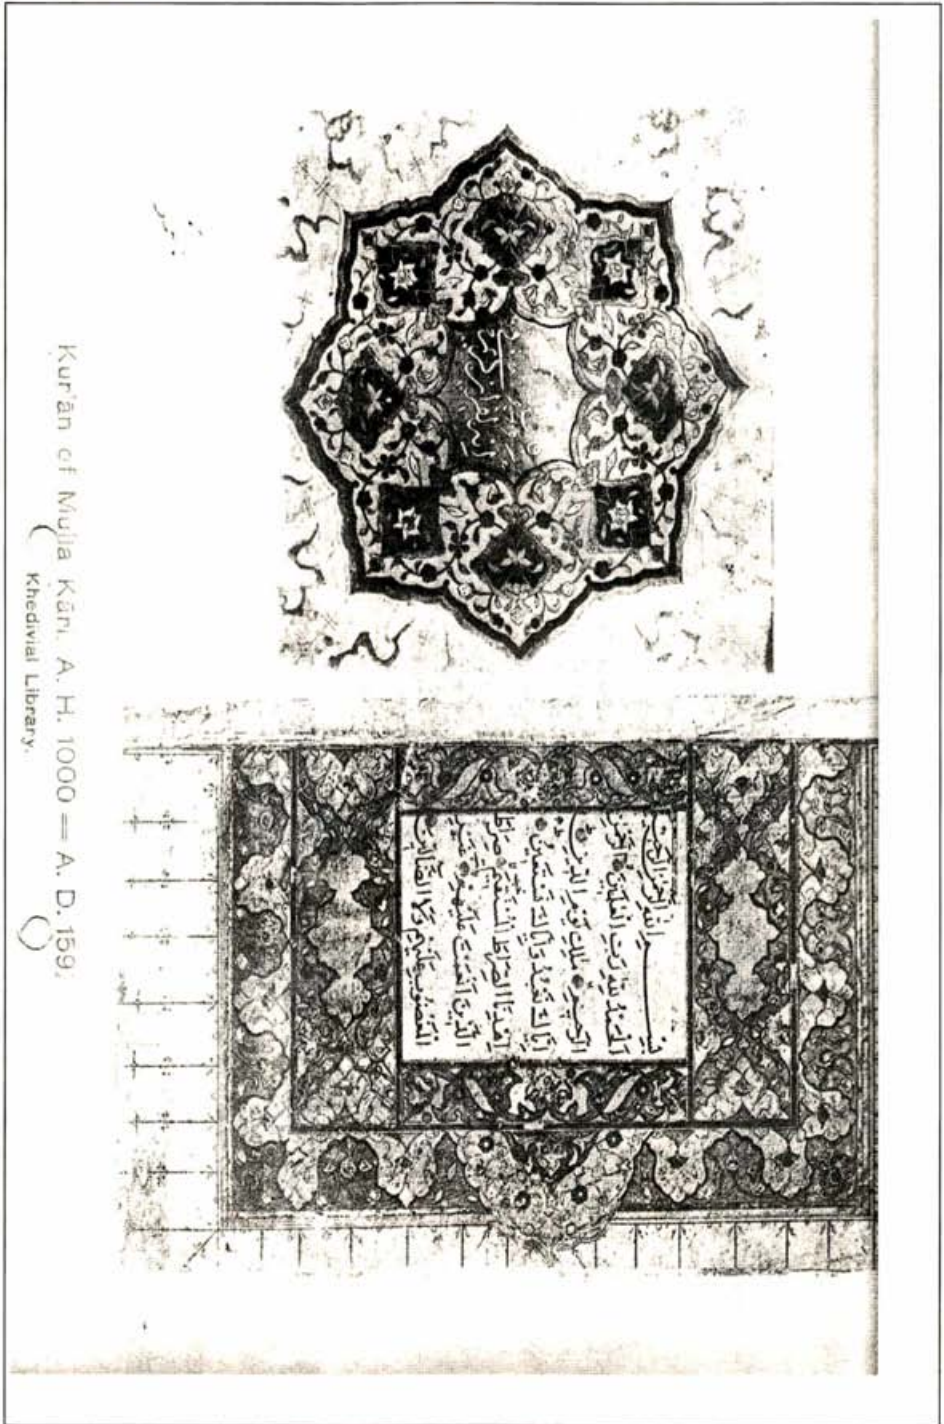 بِسْمِ اللهِ الرَّحْمٰنِ الرَّحِيمِ
اَلْحَمْدُ لِلّٰهِ رَبِّ الْعٰلَمِينَ الرَّحْمٰنِ
الرَّحِيمِ مٰلِكِ يَوْمِ الدِّينِ
اِيَّاكَ نَعْبُدُ وَاِيَّاكَ نَسْتَعِينُ
اِهْدِنَا الصِّرَاطَ الْمُسْتَقِيمَ صِرَاطَ
الَّذِينَ اَنْعَمْتَ عَلَيْهِمْ غَيْرِ
الْمَغْضُوبِ عَلَيْهِمْ وَلَا الضَّالِّينَ
Kur'ān of Mulla Kāri. A. H. 1000 = A. D. 159.
Khedivial Library.